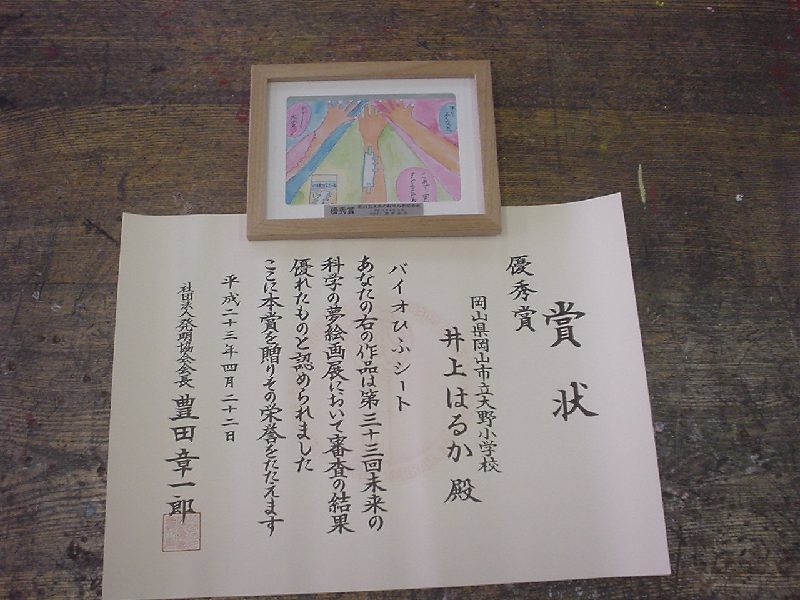 賞状
優秀賞
岡山県岡山市立大野小学校
井上はるか殿
バイオひふシート
あなたの右の作品は第三十三回未来の
科学の夢絵画展において審査の結果
優れたものと認められました
ここに本賞を贈りその栄誉をたたえます
平成二十三年四月二十二日
社団法人発明協会会長 豊田章一郎
優秀賞